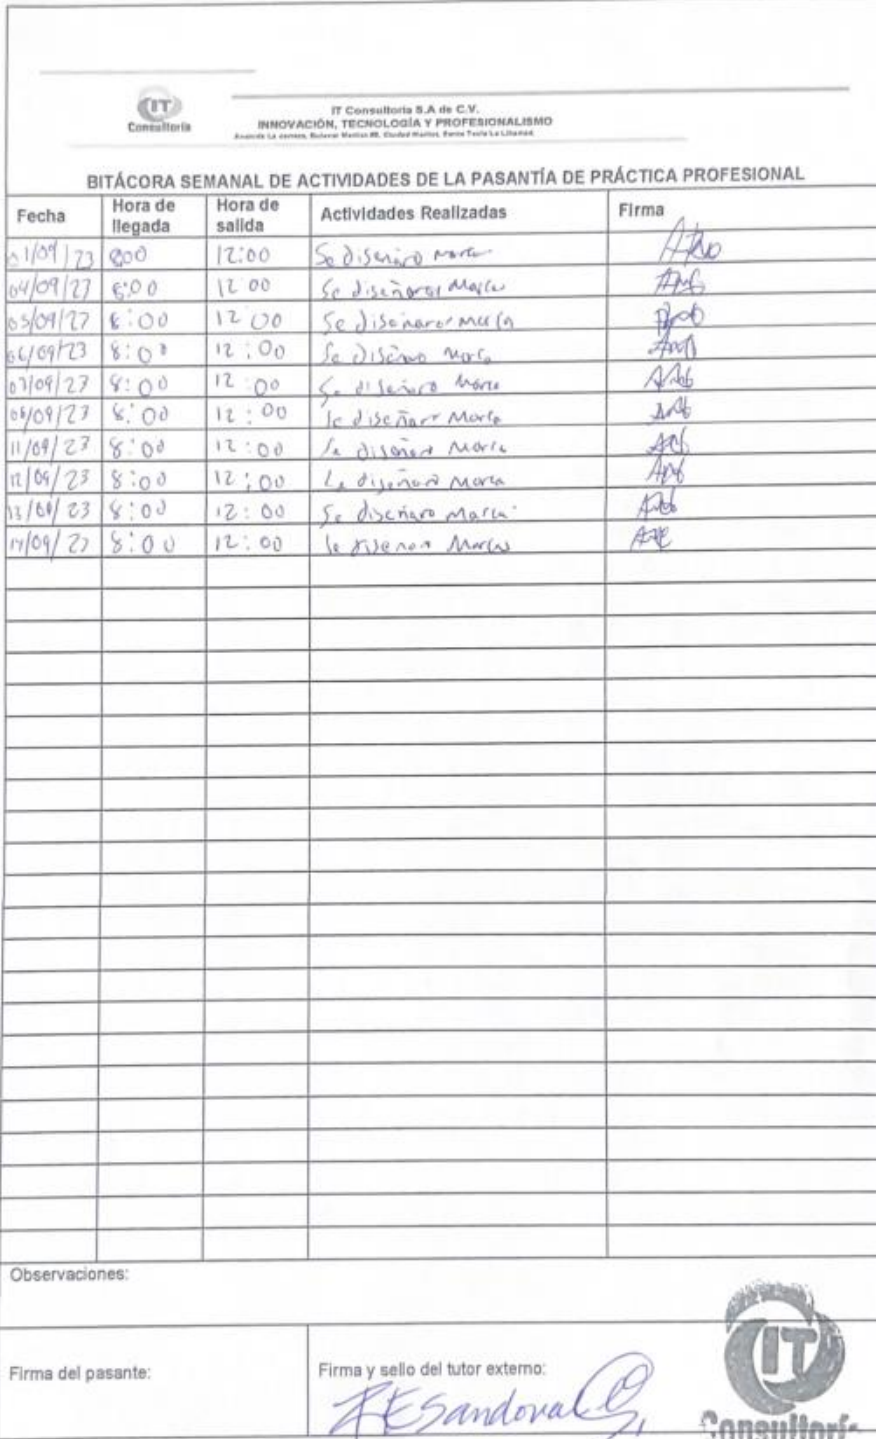 IT
Consultoría
IT Consultoria S.A de C.V.
INNOVACIÓN, TECNOLOGÍA Y PROFESIONALISMO
BITÁCORA SEMANAL DE ACTIVIDADES DE LA PASANTÍA DE PRÁCTICA PROFESIONAL
Fecha Hora de llegada Hora de salida Actividades Realizadas Firma
01/09/23 8:00 12:00 Se diseñaro
04/09/23 8:00 12 00 Se diseñaron
05/09/23 8:00 12 00 Se diseñaron
06/09/23 8:00 12:00 Se
07/09/23 8:00 12:00 Se diseñaro
08/09/23 8:00 12:00 Se diseñaro
11/09/23 8:00 12:00 Se diseñaro
12/09/23 8:00 12:00 Se diseñaro
13/09/23 8:00 12:00 Se diseñaro
14/09/23 8:00 12:00 Se Marcas
Observaciones:
Firma del pasante: Firma y sello del tutor externo:
Sandoval
IT
Consultoría